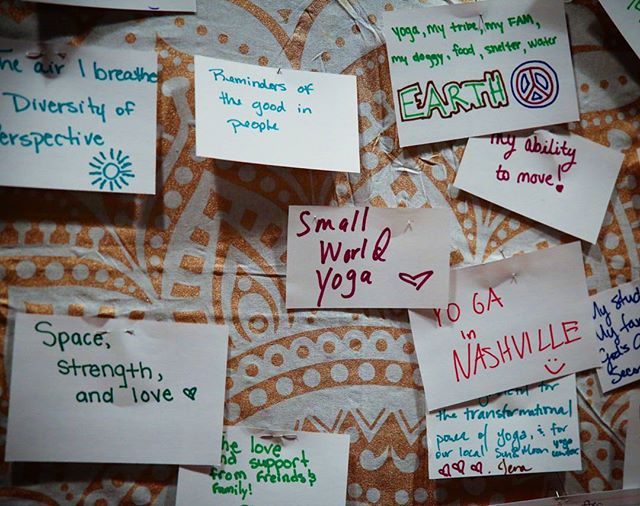 The air I breathe
Diversity of
Perspective
Reminders of
the good in
people
Yoga, my tribe, my FAM,
my doggy, food, shelter, water
EARTH
my ability
to move!
Small
World
Yoga
YOGA
in
NASHVILLE
Space,
strength,
and love
The love
and support
from Freinds &
Family!
for
the transformational
power of yoga, & for
our local
yoga
center
Jena
My
My